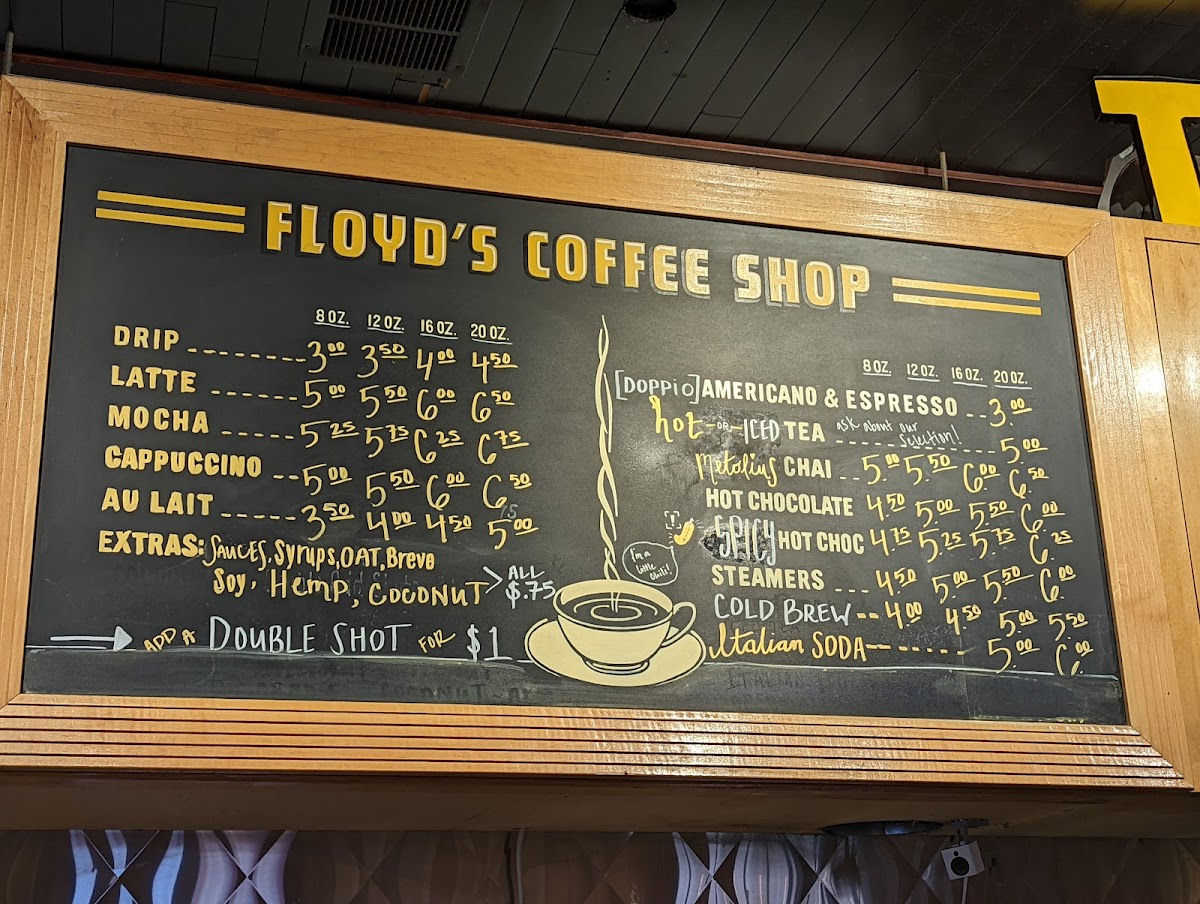 FLOYD'S COFFEE SHOP
8 OZ. 12 OZ. 16 OZ. 20 OZ.
DRIP -------- 3.00 3.50 4.00 4.50
LATTE ------- 5.00 5.50 6.00 6.50
MOCHA ----- 5.25 5.75 6.25 6.75
CAPPUCCINO -- 5.00 5.50 6.00 6.50
AU LAIT ----- 3.50 4.00 4.50 5.00
EXTRAS: SAUCES, Syrups, OAT, Breve
Soy, HEMP, COCONUT > ALL $.75
ADD A DOUBLE SHOT FOR $1
8 OZ. 12 OZ. 16 OZ. 20 OZ.
[DOPPIO] AMERICANO & ESPRESSO -- 3.00
hot -OR- ICED TEA ask about our selection! 5.00
Metolius CHAI -- 5.00 5.50 6.00 6.50
HOT CHOCOLATE 4.50 5.00 5.50 6.00
SPICY HOT CHOC 4.75 5.25 5.75 6.25
I'm a little chili!
STEAMERS --- 4.50 5.00 5.50 6.00
COLD BREW -- 4.00 4.50 5.00 5.50
Italian SODA ------- 5.00 6.00